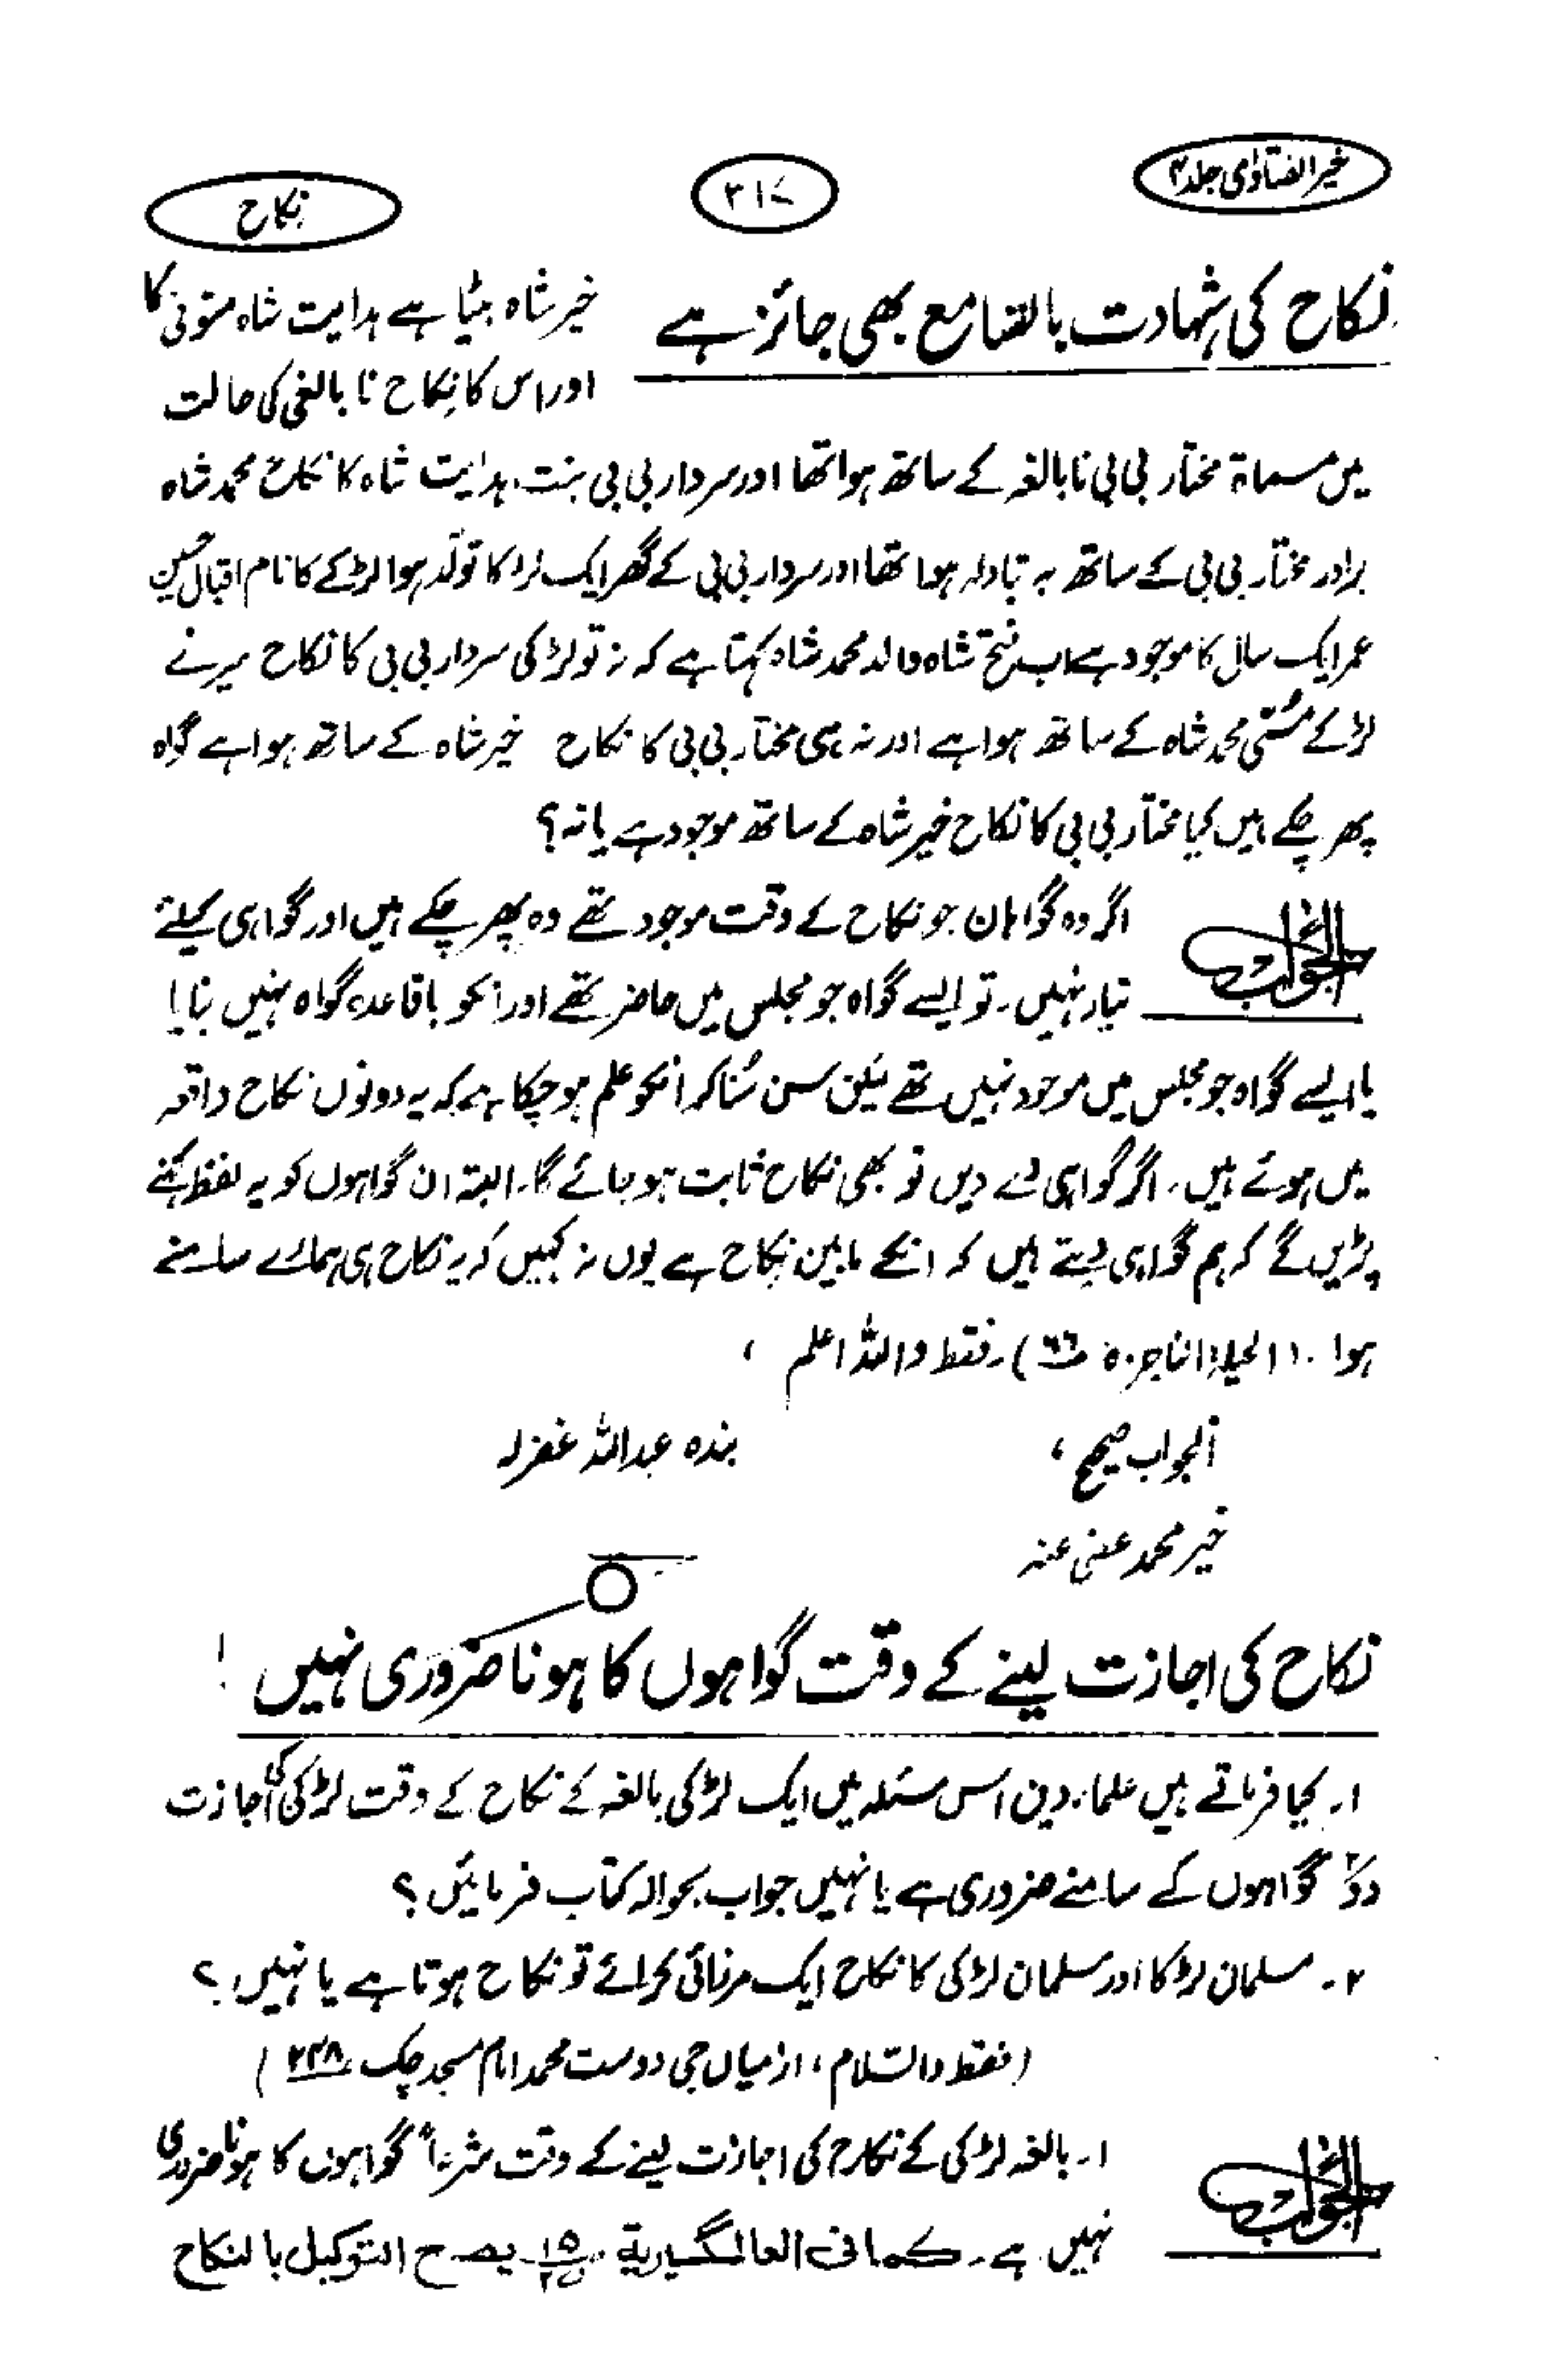 خیرالفتاویٰ جلد ۴
۳۱۷
نکاح
نکاح کی شہادت بالتسامع بھی جائز ہے
خیر شاہ بیٹا ہے ہدایت شاہ متوفی کا
اور اس کا نکاح نا بالغی کی حالت
میں مسماۃ مختار بی بی نابالغہ کے ساتھ ہوا تھا اور سردار بی بی بنت ہدایت شاہ کا نکاح محمد شاہ
برادر مختار بی بی کے ساتھ بہ تبادلہ ہوا تھا اور سردار بی بی کے گھر ایک لڑکا تولّد ہوا لڑکے کا نام اقبال حسین
عمر ایک سال کا موجود ہے اب فتح شاہ والد محمد شاہ کہتا ہے کہ نہ تو لڑکی سردار بی بی کا نکاح میرے
لڑکے مسمّٰی محمد شاہ کے ساتھ ہوا ہے اور نہ ہی مختار بی بی کا نکاح خیر شاہ کے ساتھ ہوا ہے گواہ
پھر چکے ہیں کیا مختار بی بی کا نکاح خیر شاہ کے ساتھ موجود ہے یا نہ ؟
الجواب
اگر وہ گواہان جو نکاح کے وقت موجود تھے وہ پھر چکے ہیں اور گواہی کیلئے
تیار نہیں ۔ تو ایسے گواہ جو مجلس میں حاضر تھے اور انکو باقاعدہ گواہ نہیں بنایا
یا ایسے گواہ جو مجلس میں موجود نہیں تھے لیکن سن سُنا کر انکو علم ہو چکا ہے کہ یہ دونوں نکاح واقعہ
میں ہوئے ہیں ۔ اگر گواہی دے دیں تو بھی نکاح ثابت ہو جائے گا ۔ البتہ ان گواہوں کو یہ لفظ کہنے
پڑیں گے کہ ہم گواہی دیتے ہیں کہ انکے مابین نکاح ہے یوں نہ کہیں کہ یہ نکاح ہی ہمارے سامنے
ہوا ۔ (الحیلۃ الناجزہ ص۶۶) ۔ فقط واللہ اعلم ،
الجواب صحیح ، بندہ عبداللہ غفرلہ
خیر محمد عفی عنہ
نکاح کی اجازت لینے کے وقت گواہوں کا ہونا ضروری نہیں !
۱۔ کیا فرماتے ہیں علماء دین اس مسئلہ میں ایک لڑکی بالغہ کے نکاح کے وقت لڑکی کی اجازت
دو گواہوں کے سامنے ضروری ہے یا نہیں جواب بحوالہ کتاب فرمائیں ؟
۲۔ مسلمان لڑکا اور مسلمان لڑکی کا نکاح ایک مرزائی کرائے تو نکاح ہوتا ہے یا نہیں ؟
(فقط والسّلام ، از میاں جی دوست محمد امام مسجد چک ۲۳۸)
الجواب
۱۔ بالغہ لڑکی کے نکاح کی اجازت لینے کے وقت شرعاً گواہوں کا ہونا ضروری
نہیں ہے ۔ کما فی العالمگیریة یصح التوکیل بالنکاح